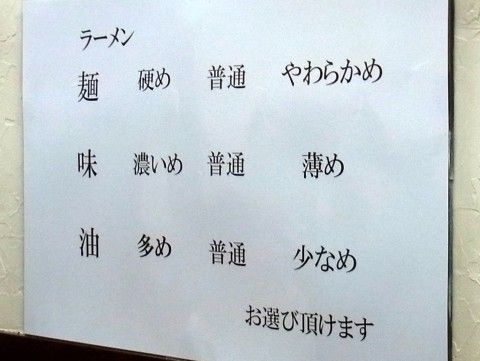 ラーメン
麺 硬め 普通 やわらかめ
味 濃いめ 普通 薄め
油 多め 普通 少なめ
お選び頂けます